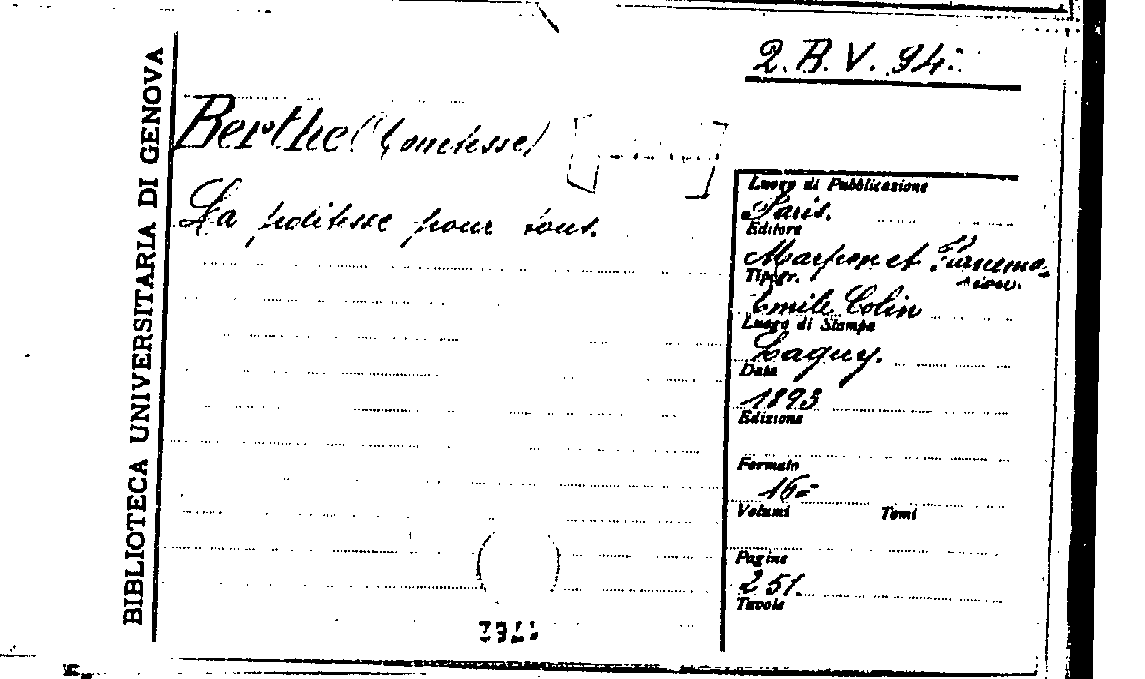 BIBLIOTECA UNIVERSITARIA DI GENOVA
2. B. V. 94.
Berthe (Comtesse)
La politesse pour tous.
Luogo di Pubblicazione
Paris.
Editore
Marpon et Flammarion.
Tipogr.
Emile Colin
Luogo di Stampa
Lagny.
Data
1893
Edizione
Formato
16º
Volumi Tomi
Pagine
251.
Tavole